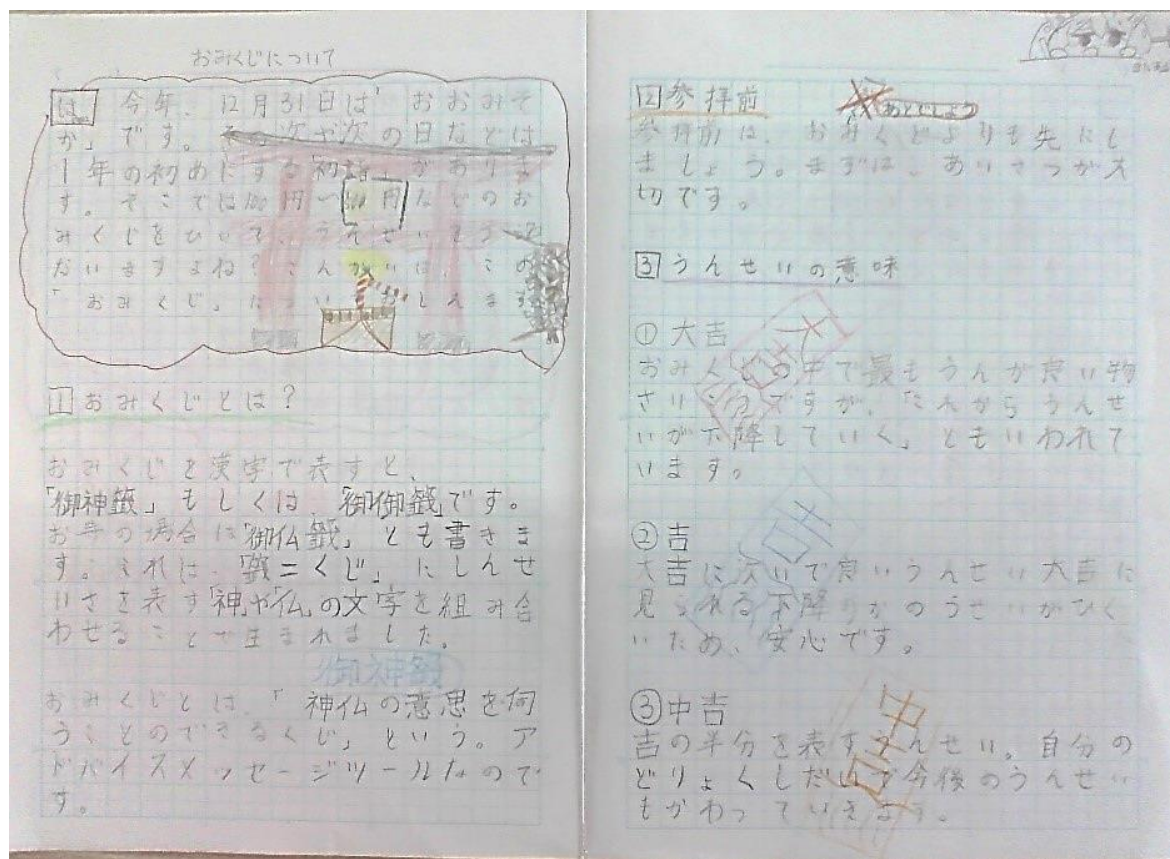 おみくじについて
は 今年、12月31日は「おおみそ
か」です。その次や次の日などは
1年の初めにする初詣がありま
す。そこでは100円〜 円などのお
みくじをひいて、うんせいをうらな
ないますよね?こんかいは、この
「おみくじ」についておしえます
1 おみくじとは?
おみくじを漢字で表すと、
「御神籤」もしくは、「御御籤」です。
お寺の場合は「御仏籤」とも書きま
す。これは、「籤=くじ」にしんせ
いさを表す「神」や「仏」の文字を組み合
わせることで生まれました。
御神籤
おみくじとは、「神仏の意思を伺
うことのできるくじ」という。ア
ドバイスメッセージツールなので
す。
2 参拝前
あとでしよう
参拝前は、おみくじよりも先にし
ましょう。まずは、あいさつが大
切です。
3 うんせいの意味
① 大吉
大吉
おみくじの中で最もうんが良い物
さいこうですが、「これからうんせ
いが下降していく」ともいわれて
います。
吉
② 吉
大吉に次いで良いうんせい大吉に
見られる下降りかのうせいがひく
いため、安心です。
中吉
③ 中吉
吉の半分を表すうんせい。自分の
どりょくしだいで今後のうんせい
もかわっていきます。